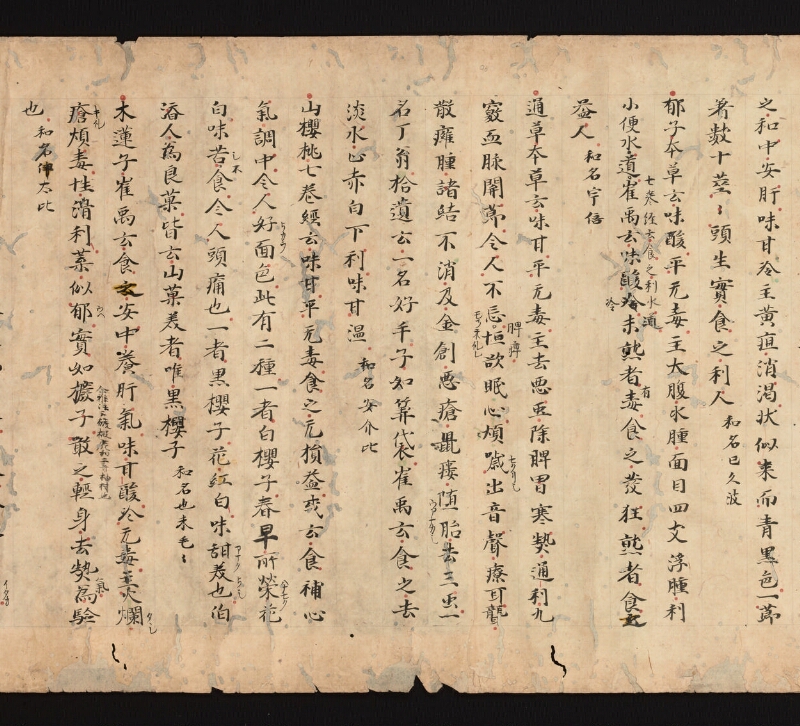 之和中安肝味甘冷主黄疸消渇状似来而青黒色一節
着數十莖〻頭生實食之利人 和名已久波
郁子本草玄味酸平无毒主大腹水腫面目四支浮腫利
小便水道崔禹玄味酸冷未熟者有毒食之發狂熟者食玄
七巻経玄食之利水道
冷
益人 和名宇倍
通草本草玄味甘平无毒主去悪虫除脾胃寒熱通利九
竅血脉開節令人不忘恒欲眠心煩噦出音聲療耳聾
脾癉
散癰腫諸結不消及金創悪瘡鼠瘻堕胎去三虫一
名丁翁拾遺玄一名好手子如筭袋崔禹玄食之去
淡水止赤白下利味甘温 和名安介比
山櫻桃七巻經玄味甘平无毒食之无損益或玄食補心
氣調中令人好面色此有二種一者白櫻子春早所榮花
白味苦不食令人頭痛也一者黒櫻子花紅白味甜美也泊
洛人為良菓皆玄山菓美者唯黒櫻子 和名也末毛〻
木蓮子崔禹玄食玄安中養肝氣味甘酸冷无毒主火爛
瘡煩毒性滑利葉似郁實如櫢子敢之輕身去熱氣為驗
也 和名伊太比